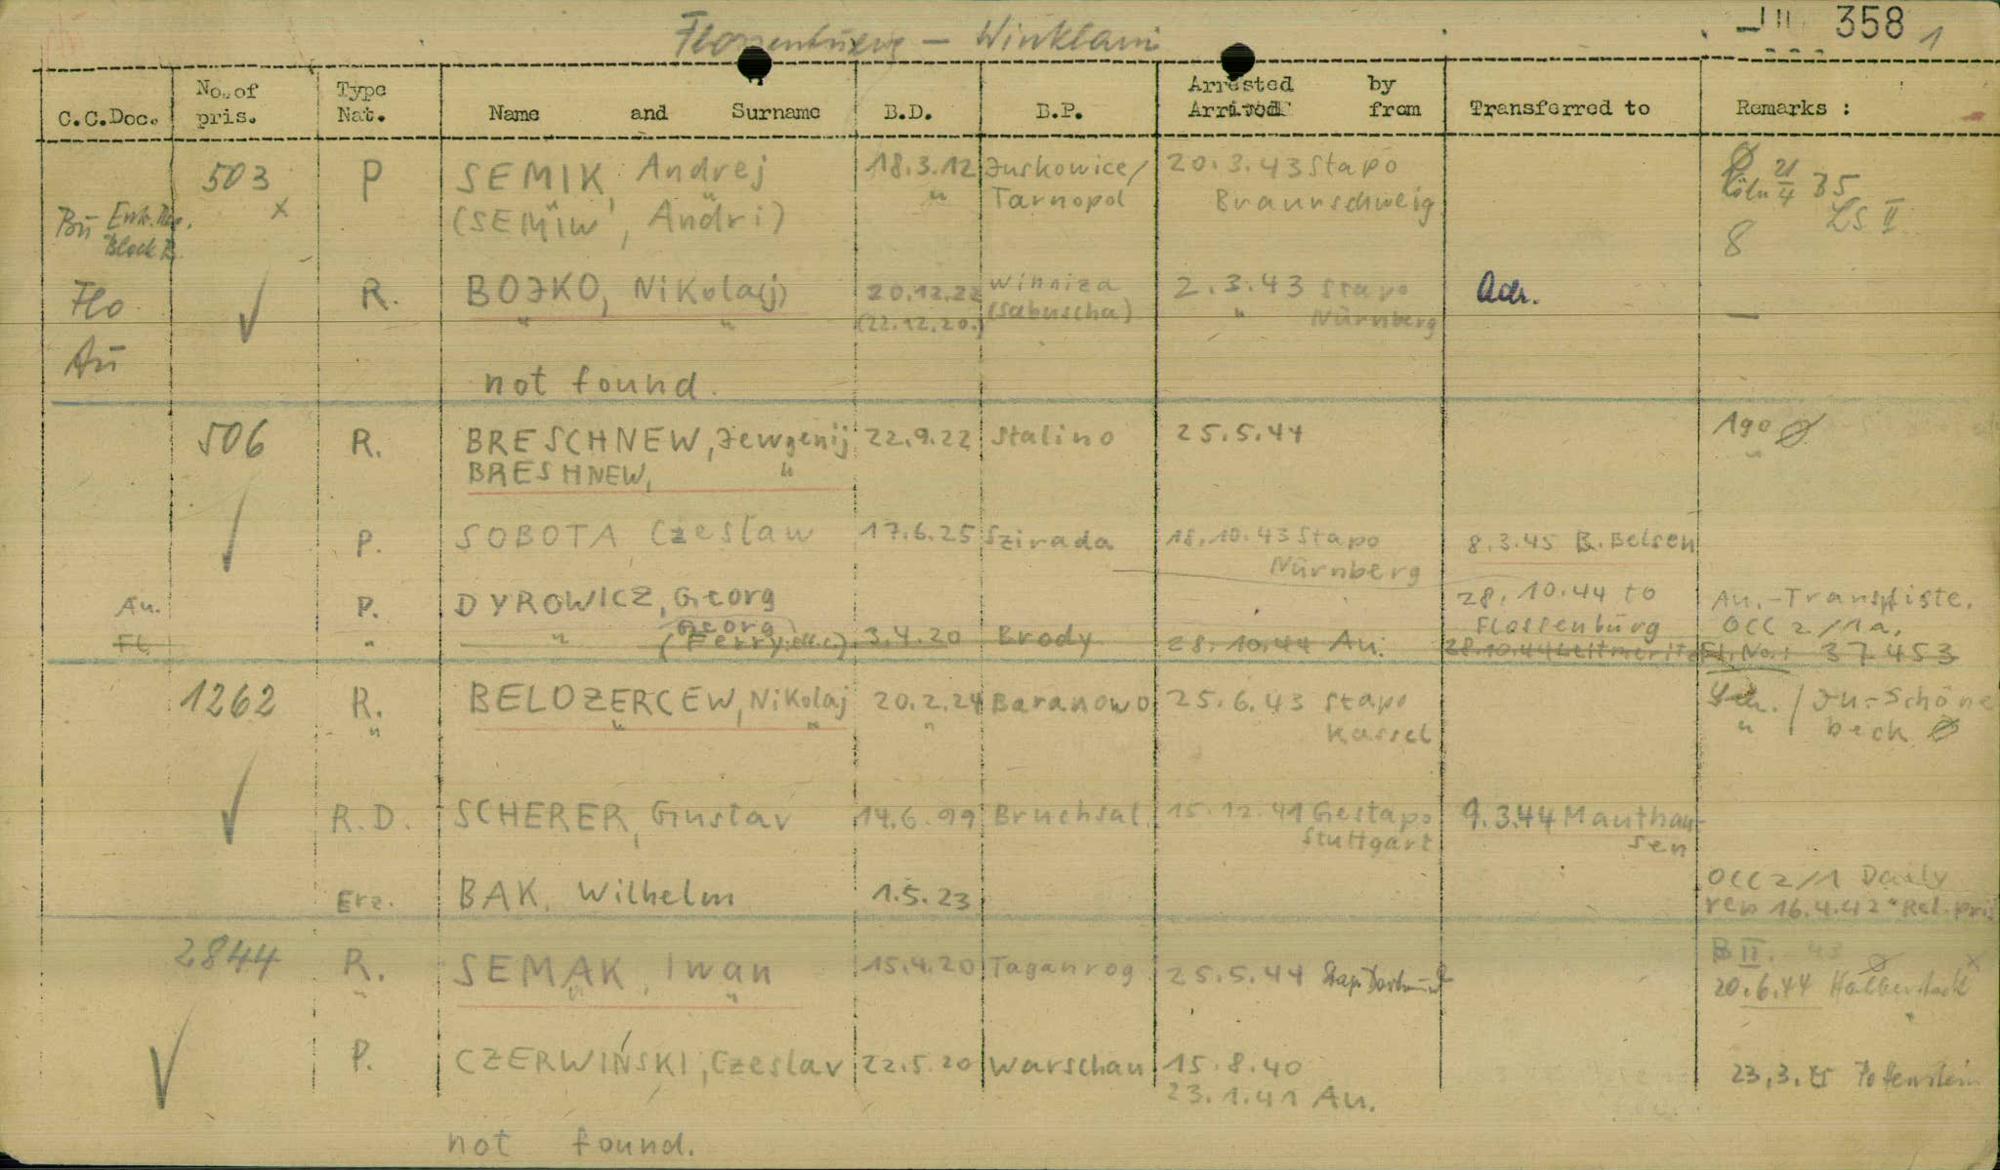 Flossenbürg – Winklarn
358 1
C.C.Doc. No. of pris. Type Nat. Name and Surname B.D. B.P. Arrested by Arrived from Transferred to Remarks :
503 P SEMIK, Andrej 18.3.12 Juskowice/ 20.3.43 Stapo
x (SEMIW, Andri) " Tarnopol Braunschweig Köln 21/4 B5
Bu Block LS II
8
Flo R. BOJKO, Nikola(j) 20.12.22 Winniza 2.3.43 Stapo Adr.
" " (22.12.20.) (Sabuscha) " Nürnberg —
Au
not found.
506 R. BRESCHNEW, Jewgenij 22.9.22 Stalino 25.5.44 Ago Ø
BRESHNEW, " "
P. SOBOTA Czeslaw 17.6.25 Szirada 18.10.43 Stapo 8.3.45 B. Belsen
Nürnberg
Au. P. DYROWICZ, Georg 28.10.44 to Au.-Transpliste.
Georg Flossenbürg OCC 2/1a,
Fl. " " (Ferry etc.) 3.4.20 Brody 28.10.44 Au. 28.10.44 Leitmeritz Fl. No.: 37453
1262 R. BELOZERCEW, Nikolaj 20.2.24 Baranowo 25.6.43 Stapo / Ju-Schöne
" " " " Kassel " beck Ø
R.D. SCHERER, Gustav 14.6.99 Bruchsal 15.12.41 Gestapo 9.3.44 Mauthau-
Stuttgart sen
Erz. BAK, Wilhelm 1.5.23 OCC 2/1 Daily
rep 16.4.42 "Rel. pris
2844 R. SEMAK, Iwan 15.4.20 Taganrog 25.5.44 Stapo Dortmund B II. 43 Ø x
" " " 20.6.44 Halberstadt
P. CZERWIŃSKI, Czeslav 22.5.20 Warschau 15.8.40 23.3.45 Pottenstein
23.1.41 Au.
not found.